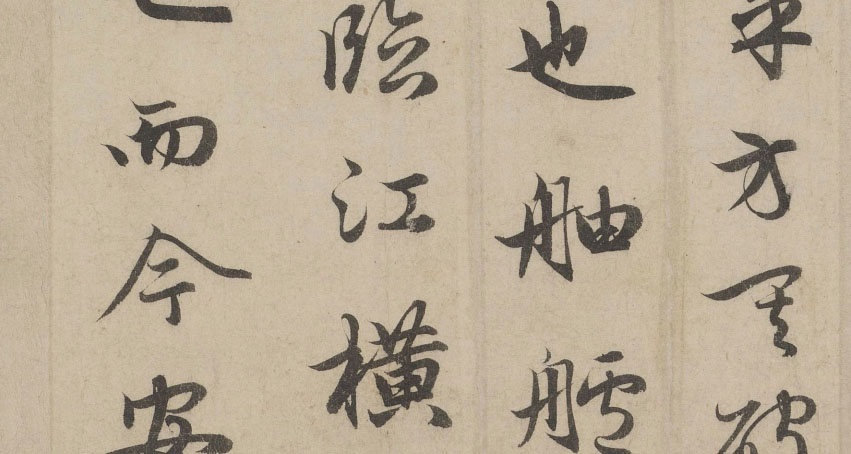 乎方其破
也舳艫
臨江橫
也而今安